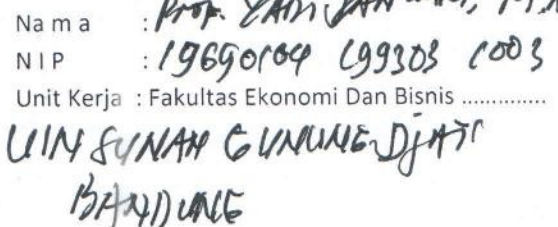 Nama : Prof.
NIP : 19690104 199303 1003
Unit Kerja : Fakultas Ekonomi Dan Bisnis ..............
UIN SUNAN GUNUNG DJATI
BANDUNG